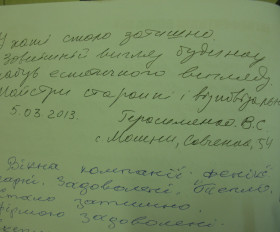 У хаті стало затишно
Зовнішній вигляд будинку
набув естетичного вигляду
Майстри старанні і відповідальні
5.03.2013. Герасименко В.С
с Мошни, Савченка, 54
Вікна компанії фенікс
гарні. Задоволені, тепло,
стало затишно.
фірмою задоволені.